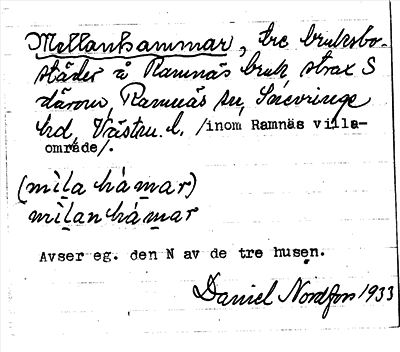 Mellanhammar, tre bruksbo-
städer å Ramnäs bruk, strax S
därom, Ramnäs sn, Snevringe
hd, Västm. l. /inom Ramnäs villa-
område/.
(mìla hámar)
mìlan hámar
Avser eg. den N av de tre husen.
Daniel Nordfors 1933